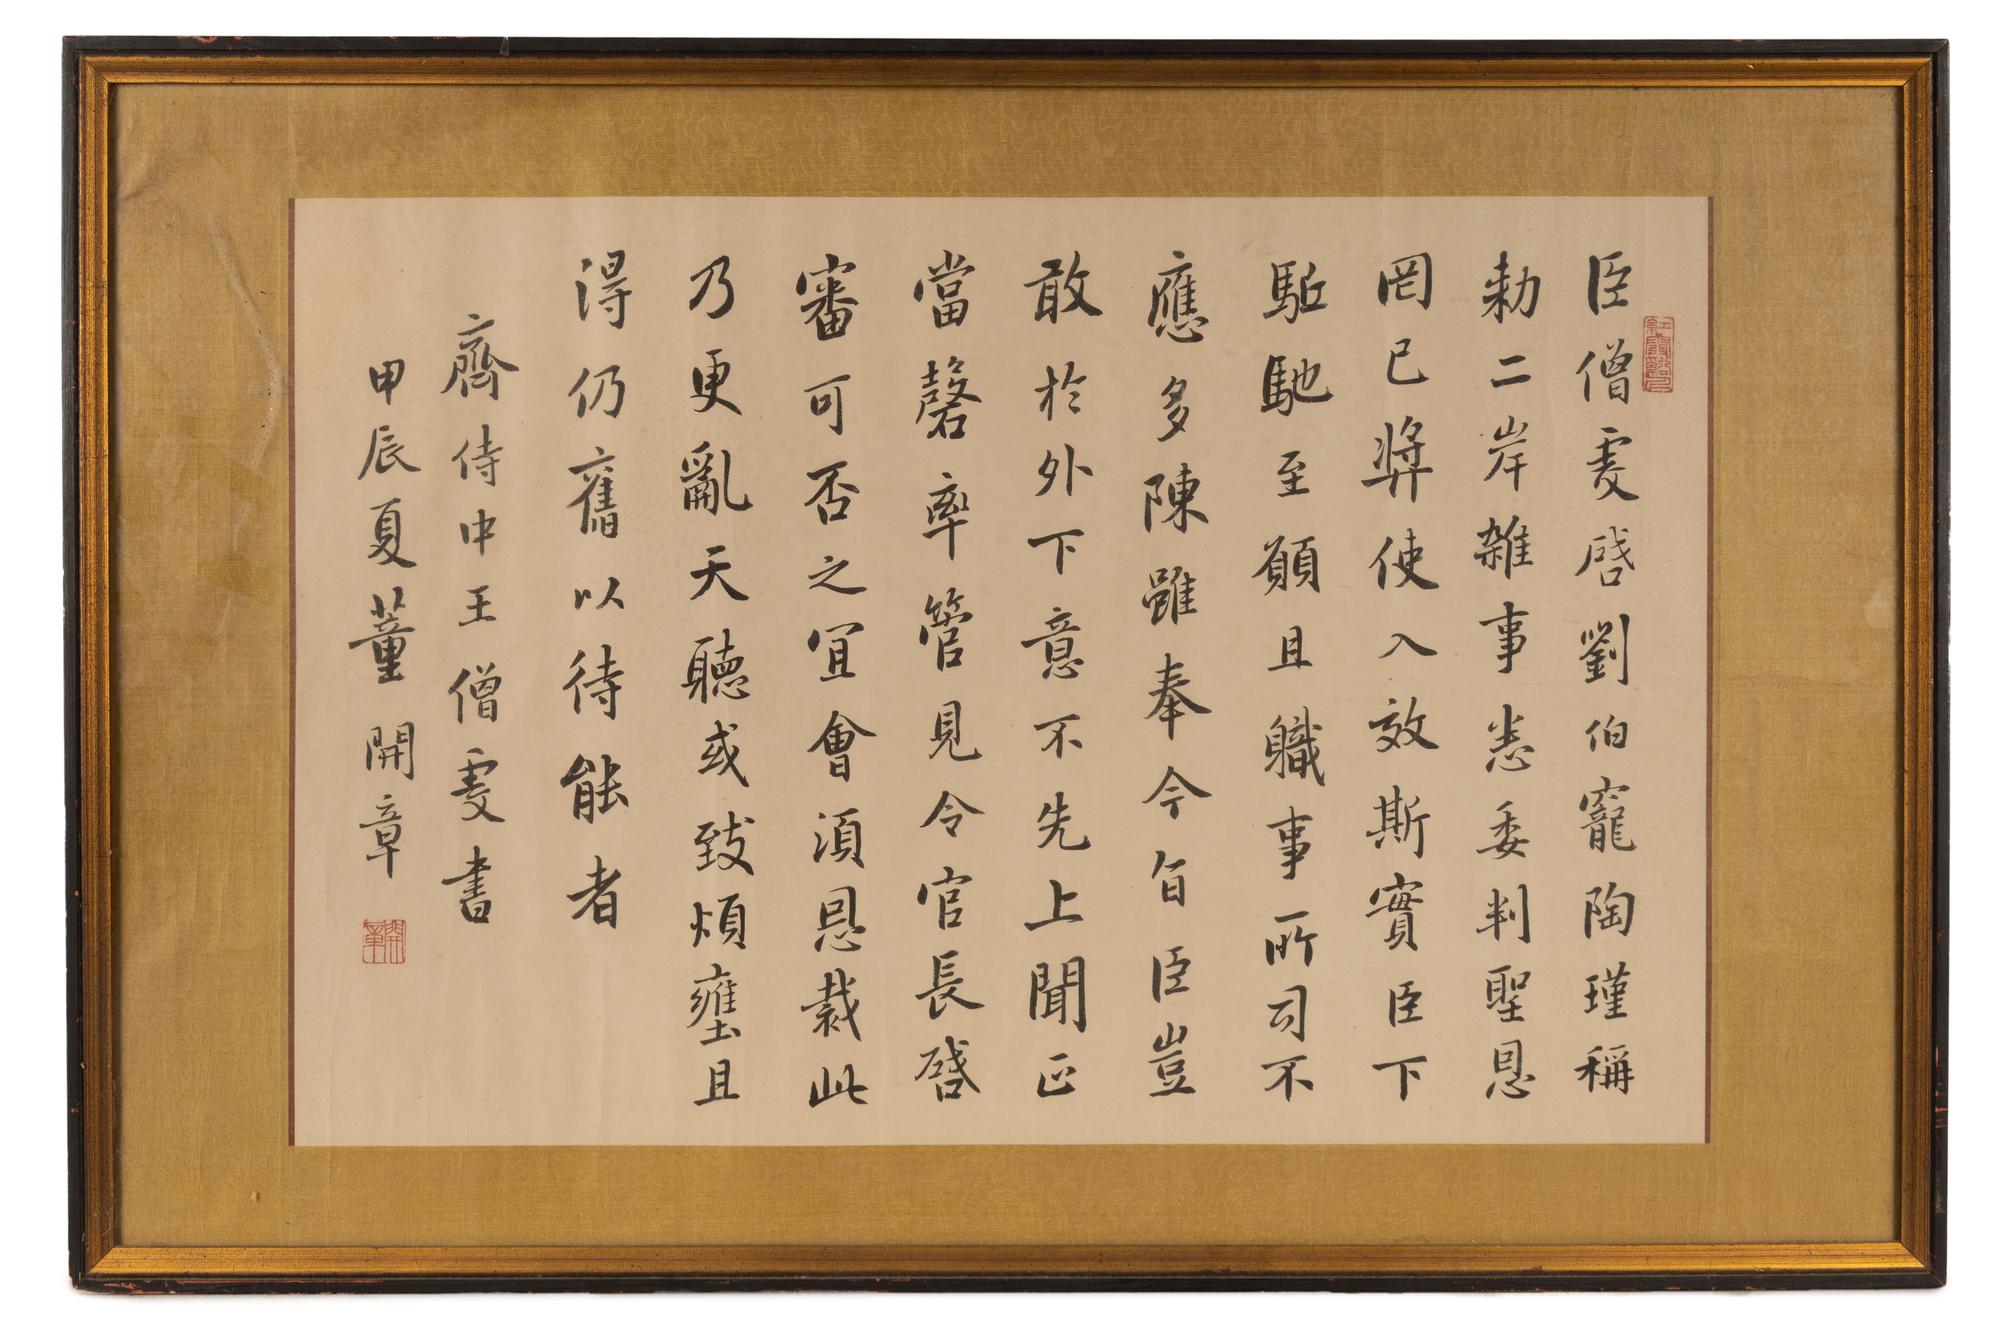 臣僧虔啓劉伯寵陶瑾稱
勑二岸雜事悉委判聖恩
罔已奬使入效斯實臣下
駈馳至願且職事所司不
應多陳雖奉今旨臣豈
敢於外下意不先上聞正
當罄率管見令官長啓
審可否之宜會須恩裁此
乃更亂天聽或致煩壅且
得仍舊以待能者
齊侍中王僧虔書
甲辰夏董開章
開章